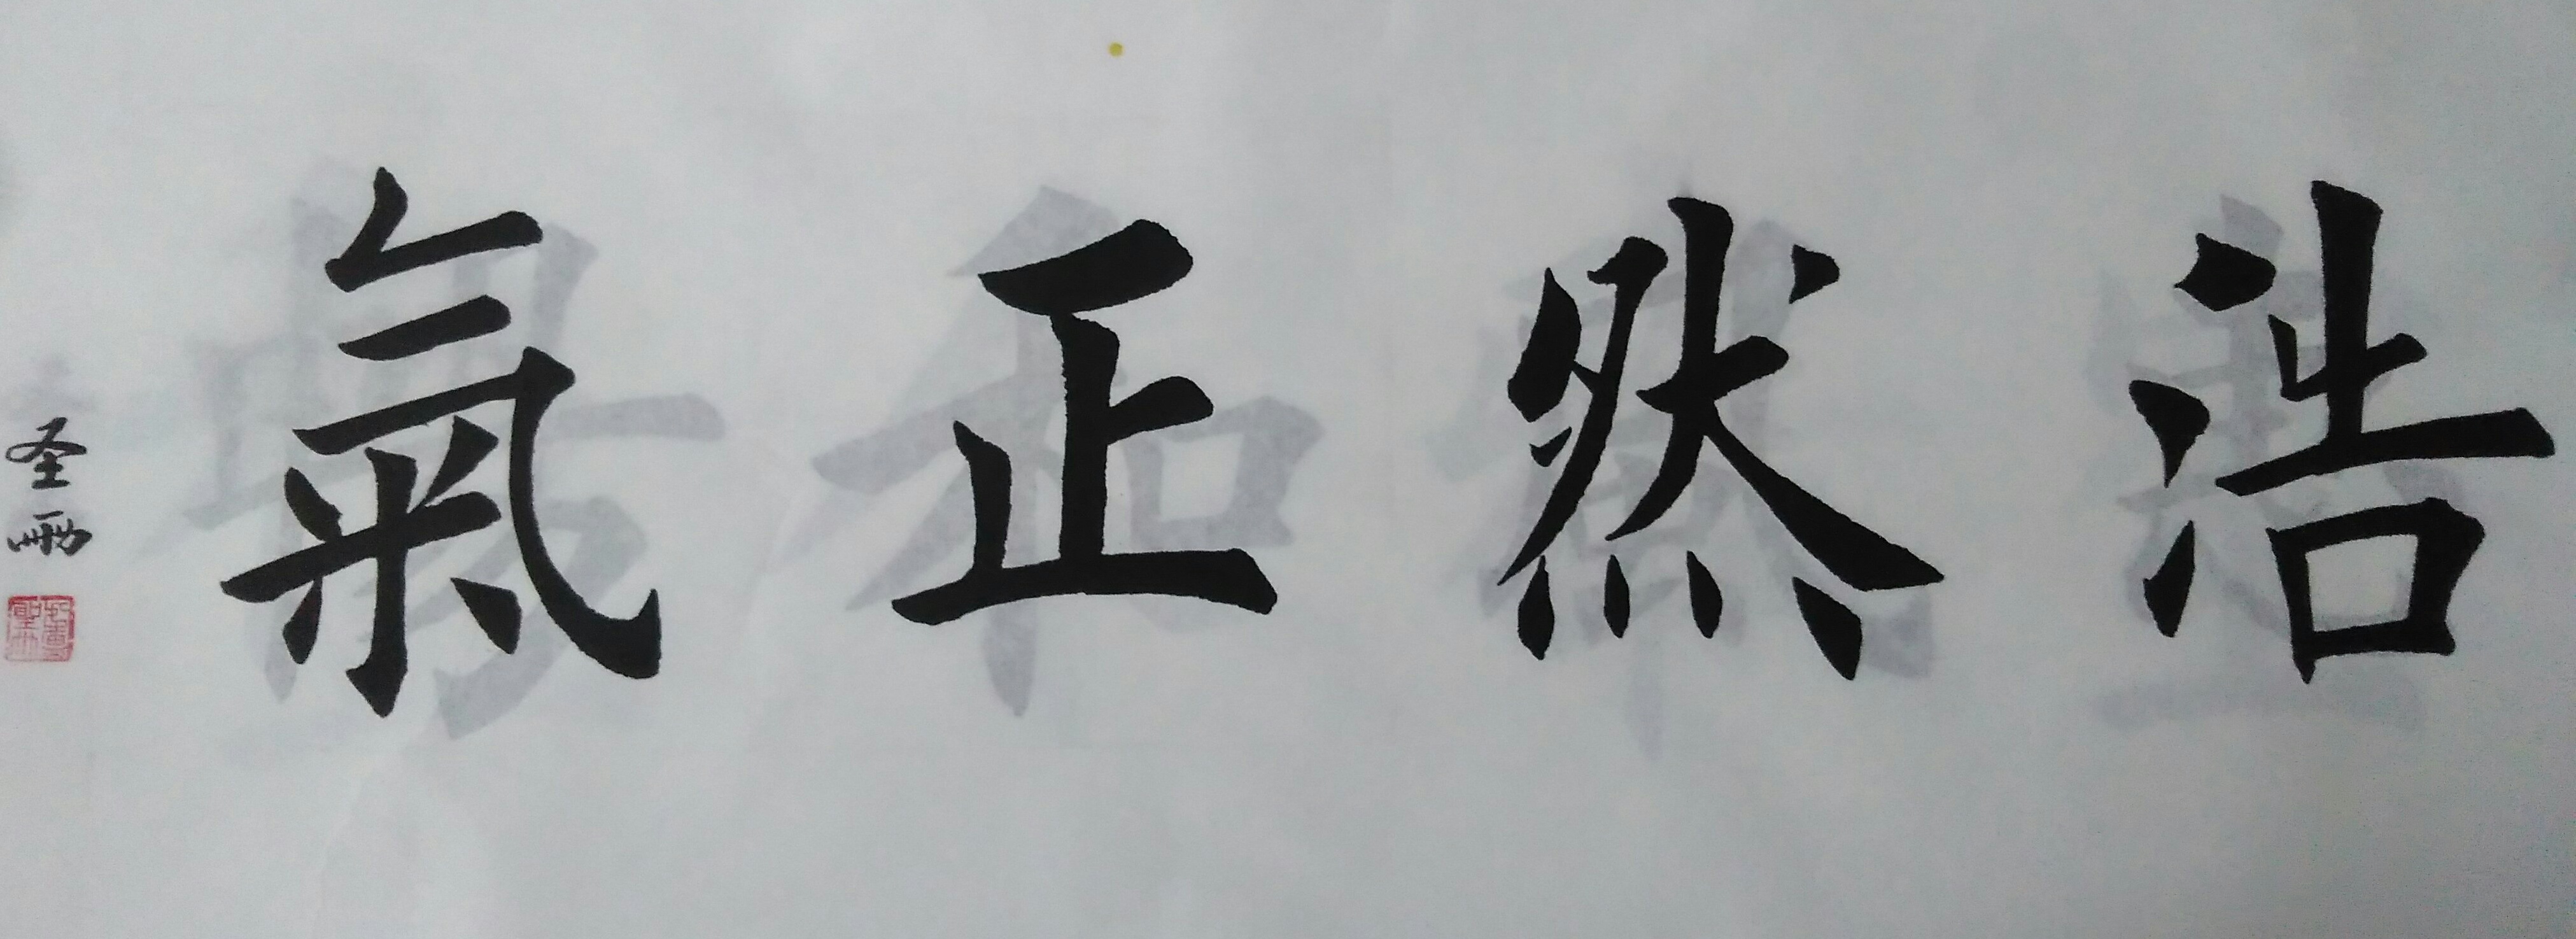 浩然正氣
圣